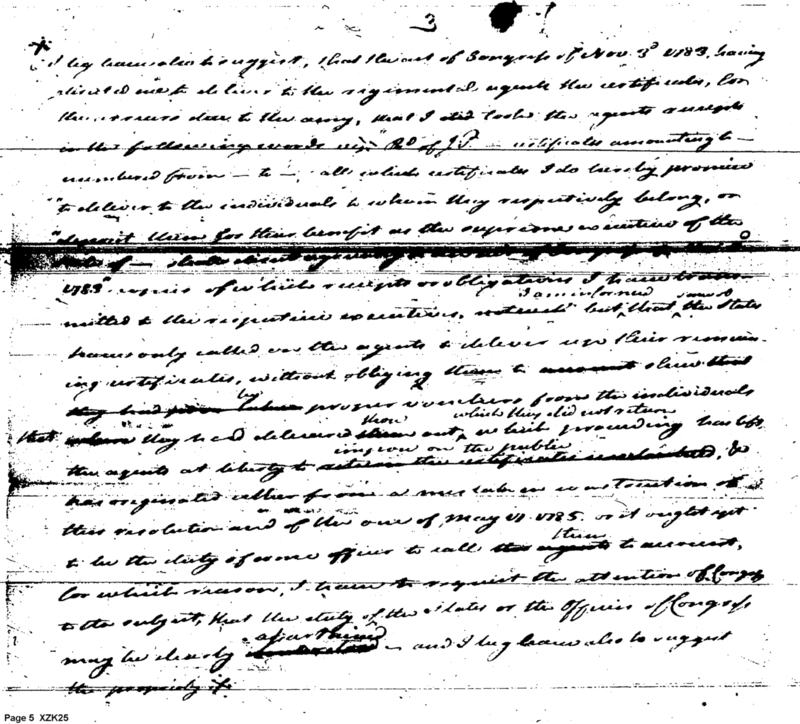 3
I beg leave also to suggest, that the act of Congress of Nov. 3d 1783, having
directed me to deliver to the regimental agents the certificates, for
the arrears due to the army, that I did take the agents receipts
in the following words viz. Rd of J P — certificates amounting to —
numbered from — to — all which certificates I do hereby promise
"to deliver to the individuals to whom they respectively belong, or
"deposit them for their benefit as the supreme executive of the
state of — shall direct
1783" copies of which receipts or obligations I have trans-
mitted to the respective executives, but I am informed that most the States
have only called on the agents to deliver up their remain-
ing certificates, without obliging them to shew
by proper vouchers from the individuals
that they had delivered those out, which they did not return which proceeding has left
the agents at liberty to impose on the public, &
has originated either from a mistaken construction of
this resolution and of the one of May 1785. or it ought yet
to be the duty of some officer to call them to account,
for which reason, I have to request the attention of Congress
to the subject, that the duty of the States or the Officers of Congress
may be clearly ascertained — and I beg leave also to suggest
the propriety of
Page 5 XZK25